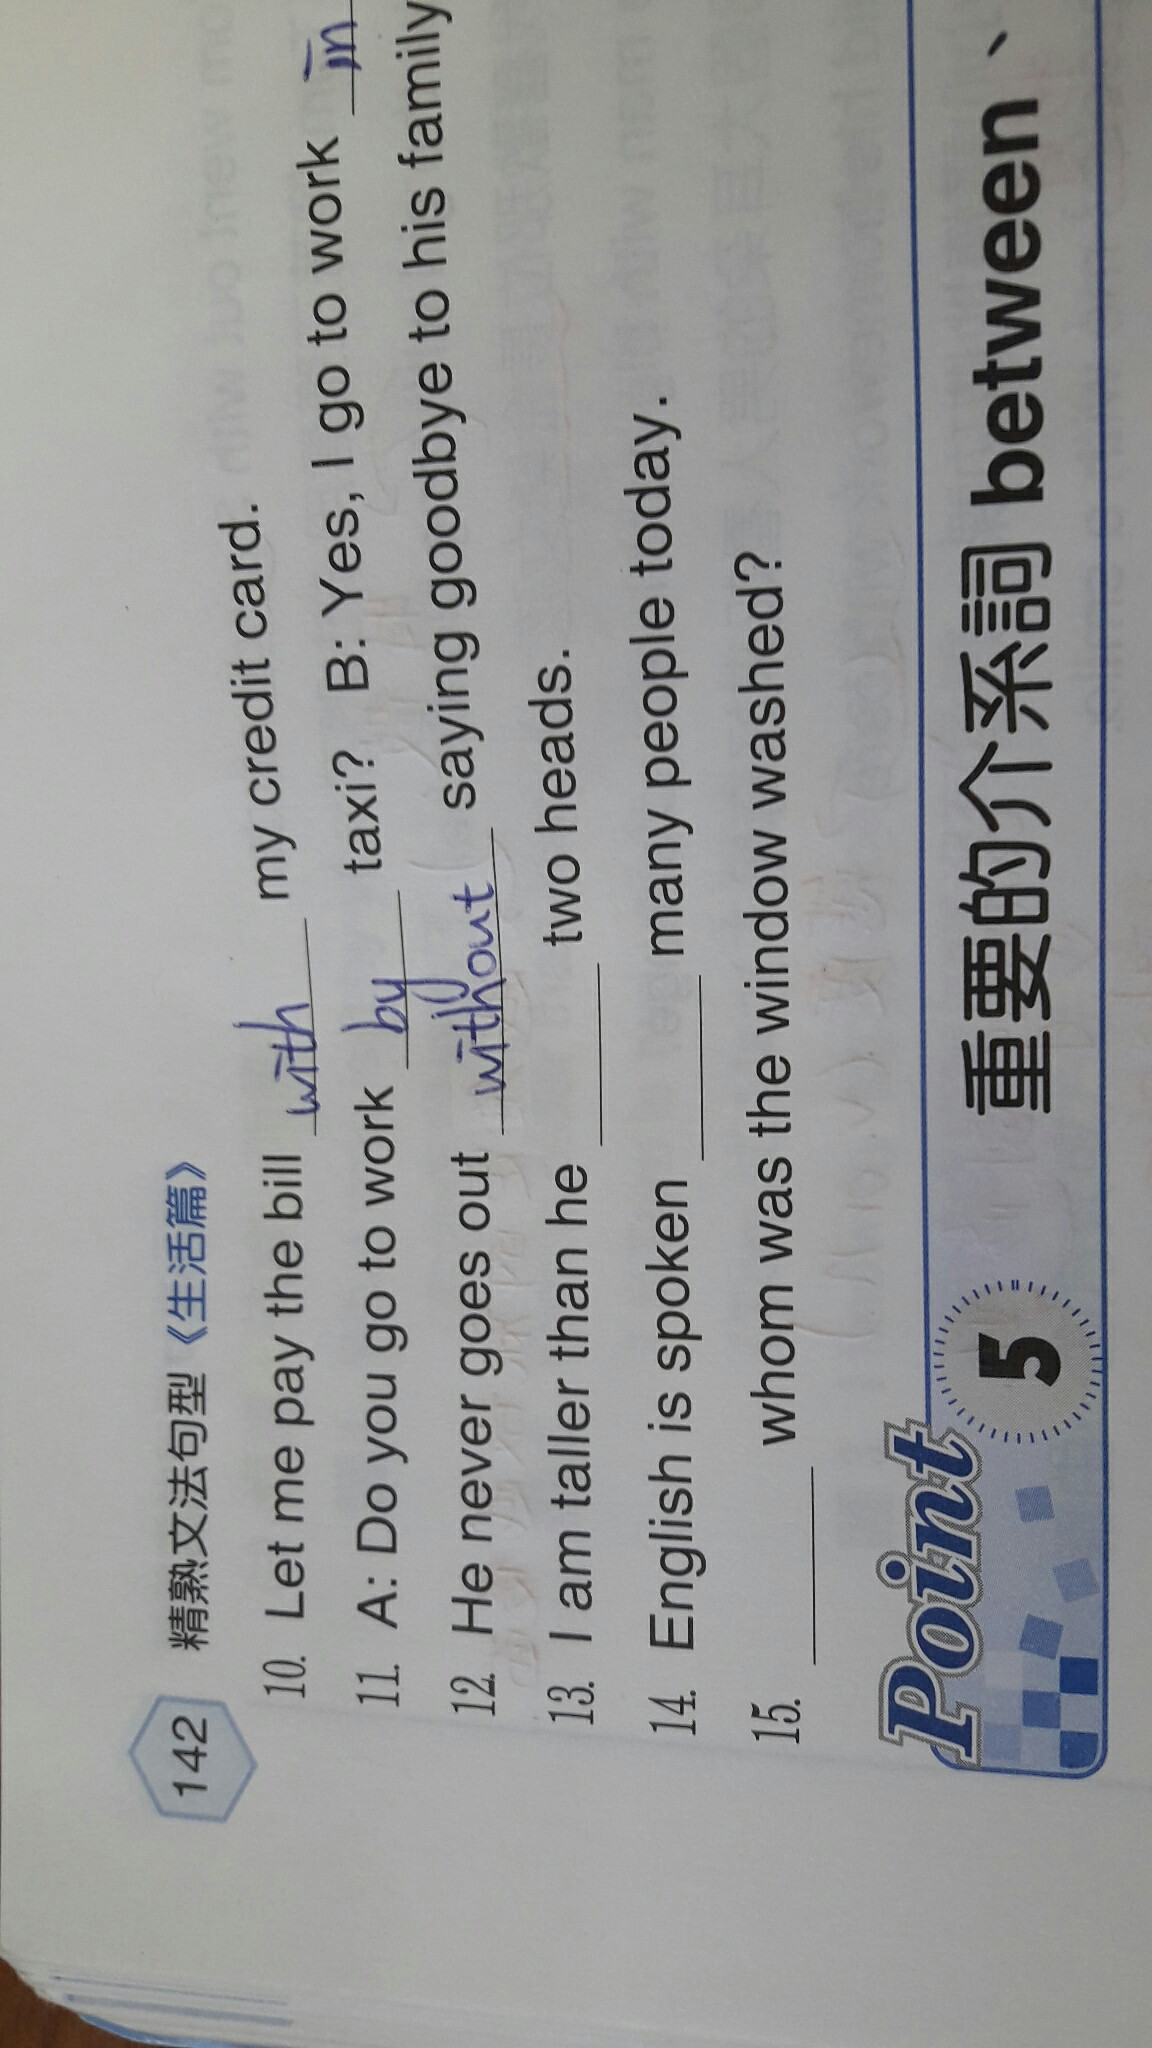 142 精熟文法句型《生活篇》
10. Let me pay the bill with my credit card.
11. A: Do you go to work by taxi? B: Yes, I go to work in
12. He never goes out without saying goodbye to his family
13. I am taller than he ______ two heads.
14. English is spoken ______ many people today.
15. ______ whom was the window washed?
Point 5 重要的介系詞 between、